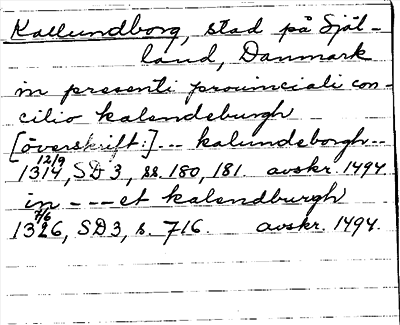 Kallundborg, stad på Själ-
land, Danmark
in presenti provinciali con-
cilio kalendeburgh
[överskrift:] --- kalundeborgh --
12/9
1314, SD 3, ss. 180, 181. avskr. 1494
in --- et kalendburgh
7/6
1326, SD 3, s. 716. avskr. 1494.